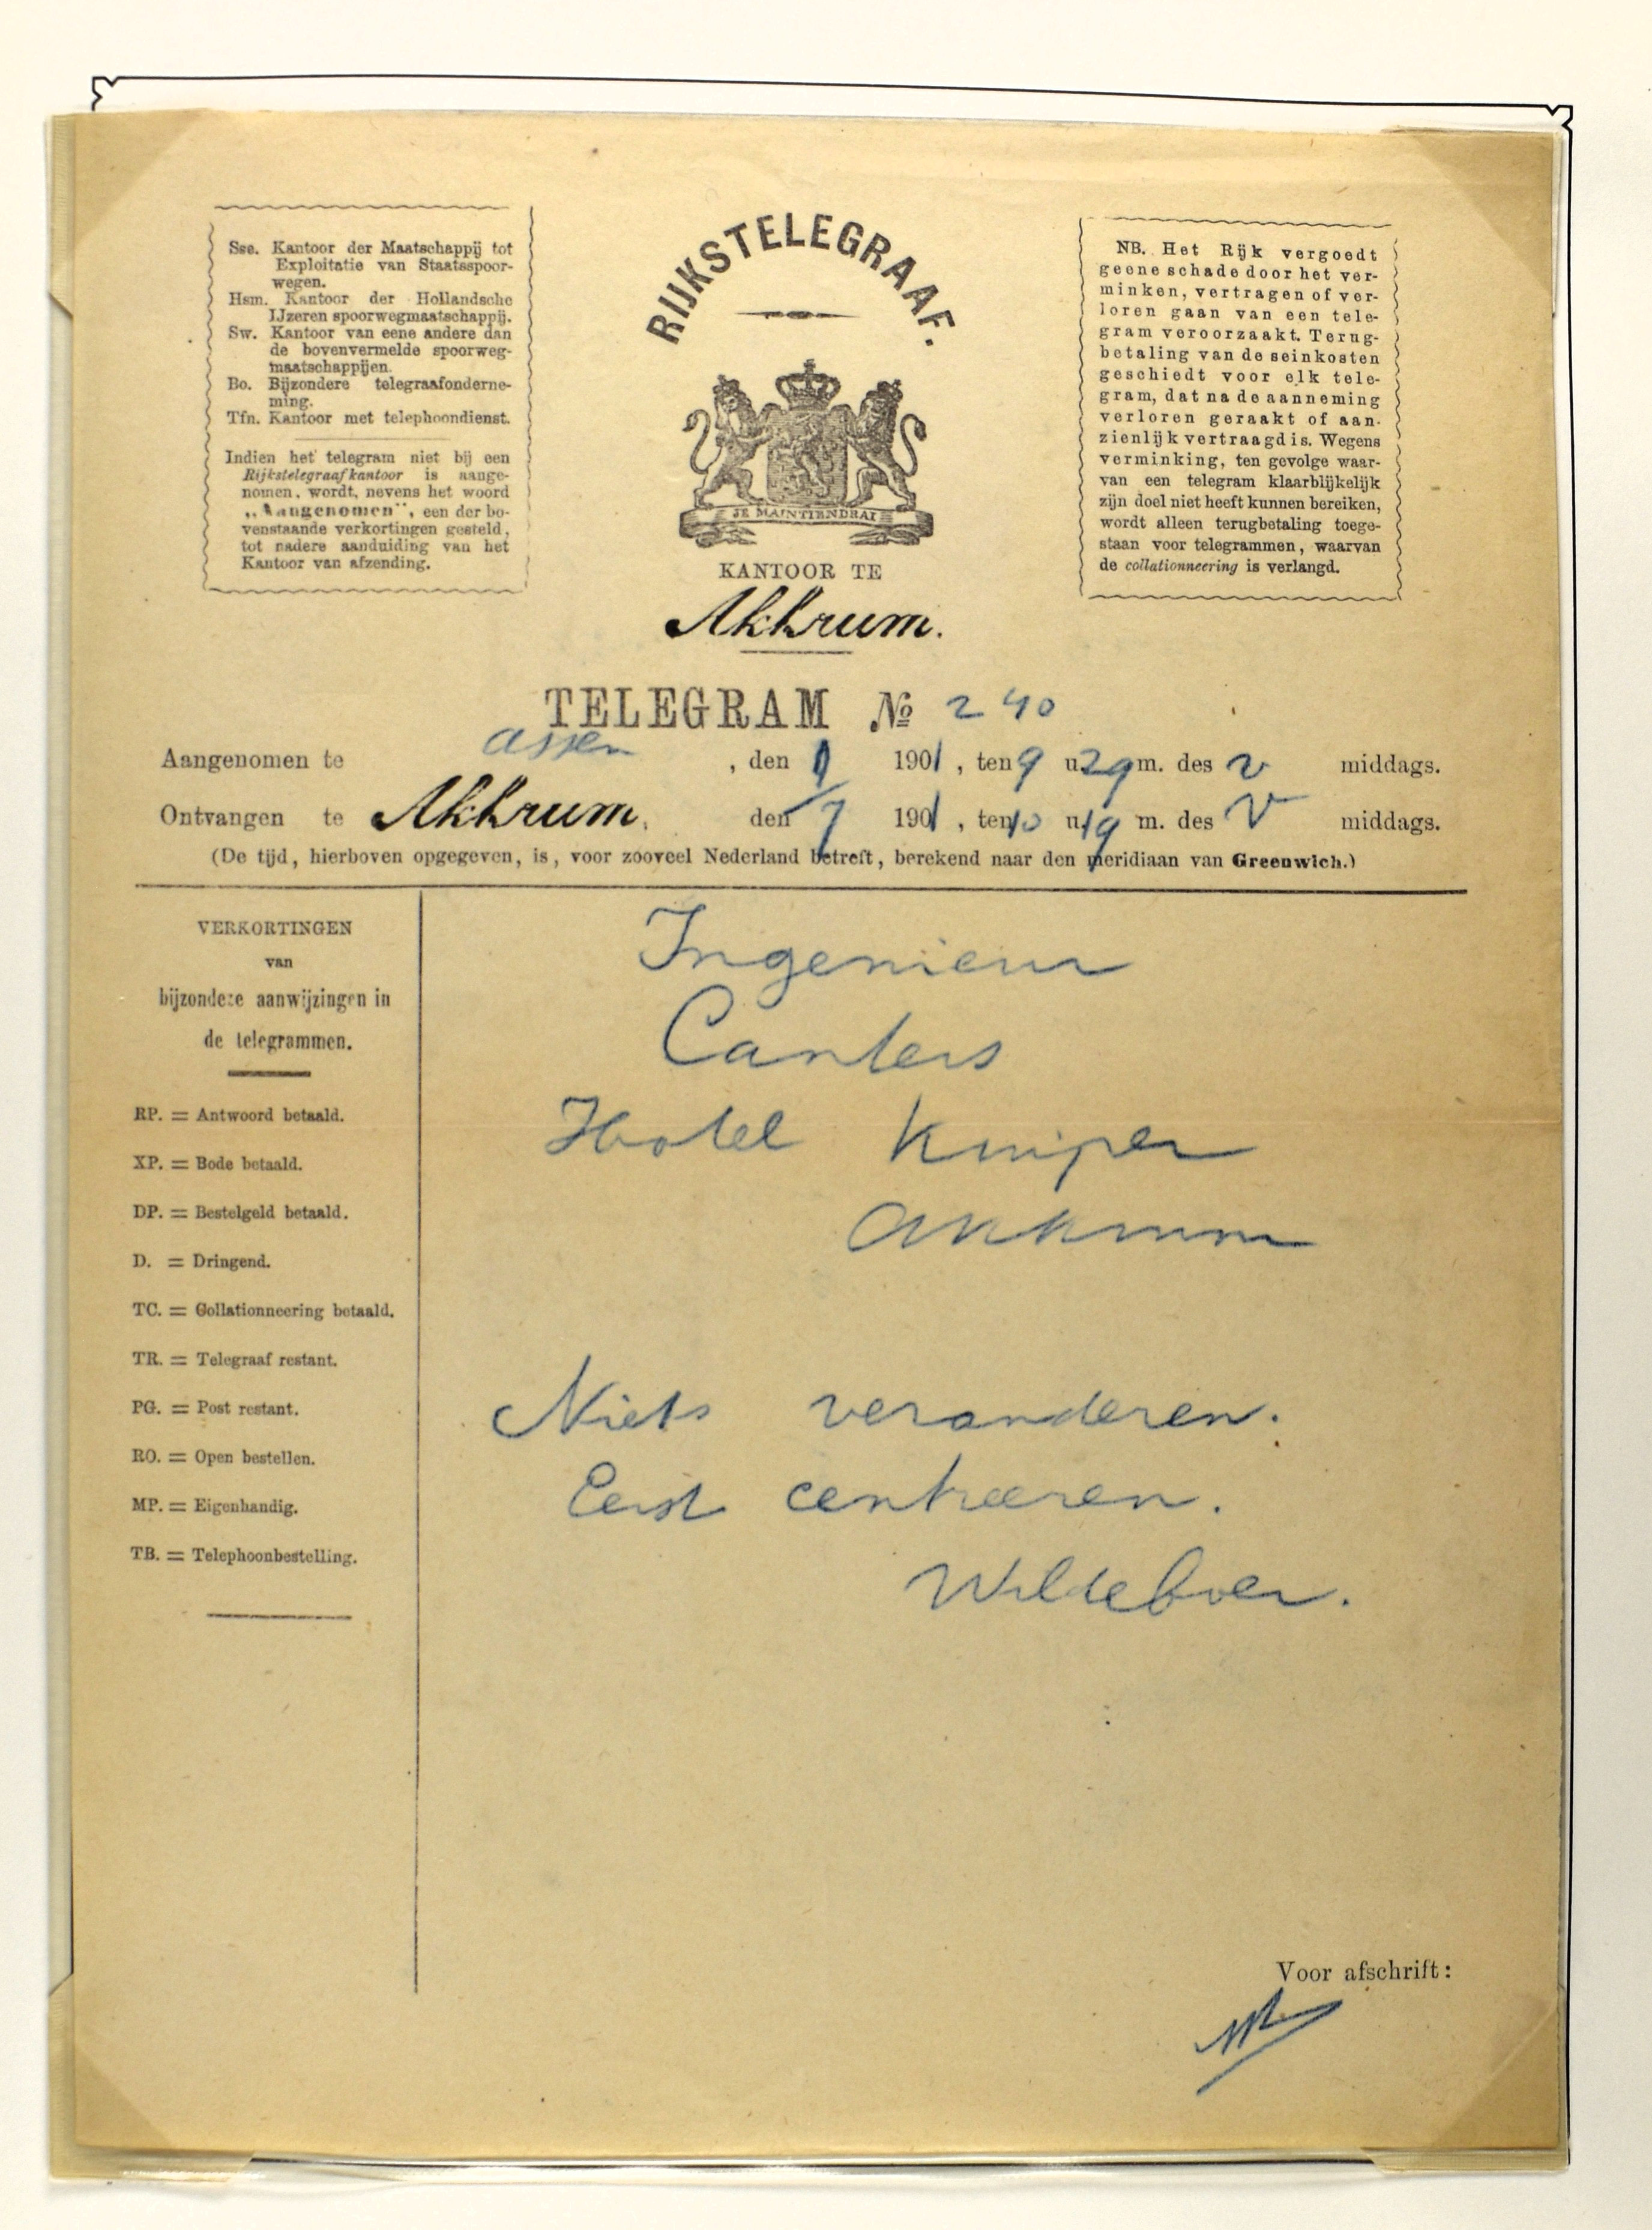 Sse. Kantoor der Maatschappij tot
Exploitatie van Staatsspoor-
wegen.
Hsm. Kantoor der Hollandsche
IJzeren spoorwegmaatschappij.
Sw. Kantoor van eene andere dan
de bovenvermelde spoorweg-
maatschappijen.
Bo. Bijzondere telegraafonderne-
ming.
Tfn. Kantoor met telephoondienst.
Indien het telegram niet bij een
Rijkstelegraafkantoor is aange-
nomen, wordt, nevens het woord
„Aangenomen”, een der bo-
venstaande verkortingen gesteld,
tot nadere aanduiding van het
Kantoor van afzending.
RIJKSTELEGRAAF.
JE MAINTIENDRAI
KANTOOR TE
Akkrum.
NB. Het Rijk vergoedt
geene schade door het ver-
minken, vertragen of ver-
loren gaan van een tele-
gram veroorzaakt. Terug-
betaling van de seinkosten
geschiedt voor elk tele-
gram, dat na de aanneming
verloren geraakt of aan-
zienlijk vertraagd is. Wegens
verminking, ten gevolge waar-
van een telegram klaarblijkelijk
zijn doel niet heeft kunnen bereiken,
wordt alleen terugbetaling toege-
staan voor telegrammen, waarvan
de collationneering is verlangd.
TELEGRAM No 240
Aangenomen te Assen, den 1901, ten 9 u 29 m. des v middags.
Ontvangen te Akkrum, den 7 1901, ten 10 u 19 m. des V middags.
(De tijd, hierboven opgegeven, is, voor zooveel Nederland betreft, berekend naar den meridiaan van Greenwich.)
VERKORTINGEN
van
bijzondere aanwijzingen in
de telegrammen.
RP. = Antwoord betaald.
XP. = Bode betaald.
DP. = Bestelgeld betaald.
D. = Dringend.
TC. = Collationneering betaald.
TR. = Telegraaf restant.
PG. = Post restant.
RO. = Open bestellen.
MP. = Eigenhandig.
TB. = Telephoonbestelling.
Ingenieur
Canters
Hotel Kuiper
Akkrum
Niets veranderen.
Eerst centreeren.
Wildeboer.
Voor afschrift: